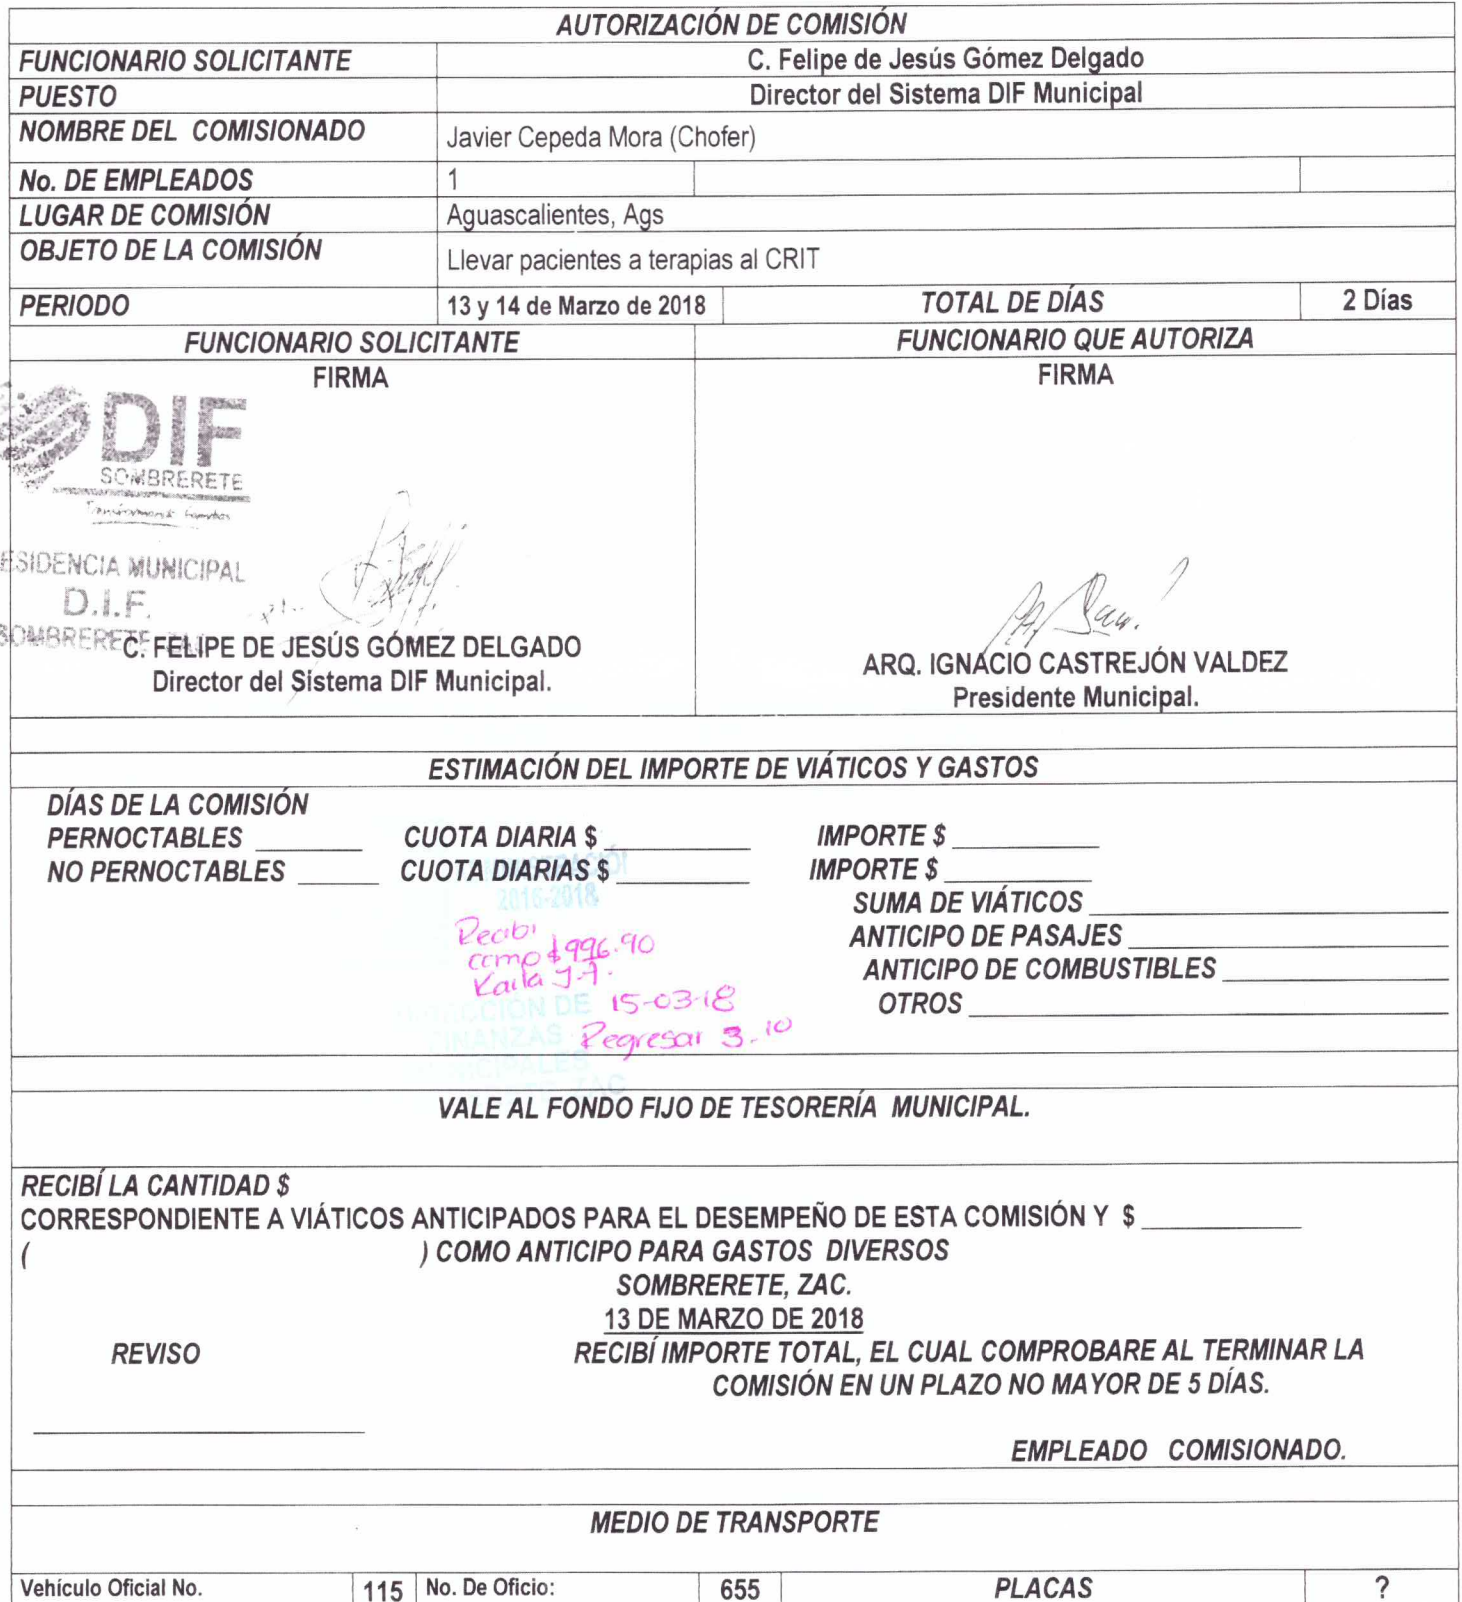 AUTORIZACIÓN DE COMISIÓN
FUNCIONARIO SOLICITANTE C. Felipe de Jesús Gómez Delgado
PUESTO Director del Sistema DIF Municipal
NOMBRE DEL COMISIONADO Javier Cepeda Mora (Chofer)
No. DE EMPLEADOS 1
LUGAR DE COMISIÓN Aguascalientes, Ags
OBJETO DE LA COMISIÓN Llevar pacientes a terapias al CRIT
PERIODO 13 y 14 de Marzo de 2018 TOTAL DE DÍAS 2 Días
FUNCIONARIO SOLICITANTE FUNCIONARIO QUE AUTORIZA
FIRMA FIRMA
DIF
SOMBRERETE
ESIDENCIA MUNICIPAL
D.I.F.
SOMBRERETE
C. FELIPE DE JESÚS GÓMEZ DELGADO
Director del Sistema DIF Municipal.
ARQ. IGNACIO CASTREJÓN VALDEZ
Presidente Municipal.
ESTIMACIÓN DEL IMPORTE DE VIÁTICOS Y GASTOS
DÍAS DE LA COMISIÓN
PERNOCTABLES CUOTA DIARIA $ IMPORTE $
NO PERNOCTABLES CUOTA DIARIAS $ IMPORTE $
2016-2018
SUMA DE VIÁTICOS
ANTICIPO DE PASAJES
ANTICIPO DE COMBUSTIBLES
OTROS
Recibi
comp $996.90
Karla J.F.
15-03-18
Regresar 3.10
DE
FINANZAS
ZAC
VALE AL FONDO FIJO DE TESORERÍA MUNICIPAL.
RECIBÍ LA CANTIDAD $
CORRESPONDIENTE A VIÁTICOS ANTICIPADOS PARA EL DESEMPEÑO DE ESTA COMISIÓN Y $
( ) COMO ANTICIPO PARA GASTOS DIVERSOS
SOMBRERETE, ZAC.
13 DE MARZO DE 2018
REVISO RECIBÍ IMPORTE TOTAL, EL CUAL COMPROBARE AL TERMINAR LA
COMISIÓN EN UN PLAZO NO MAYOR DE 5 DÍAS.
EMPLEADO COMISIONADO.
MEDIO DE TRANSPORTE
Vehículo Oficial No. 115 No. De Oficio: 655 PLACAS ?